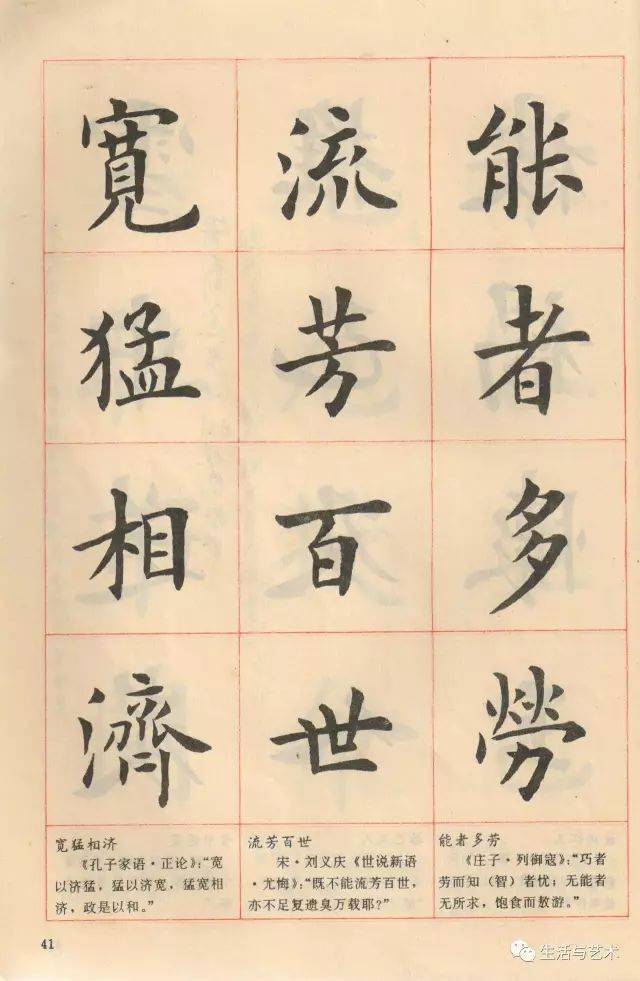 能者多勞
流芳百世
寬猛相濟
能者多劳
《庄子·列御寇》：“巧者
劳而知（智）者忧；无能者
无所求，饱食而敖游。”
流芳百世
宋·刘义庆《世说新语
·尤悔》：“既不能流芳百世，
亦不足复遗臭万载耶？”
宽猛相济
《孔子家语·正论》：“宽
以济猛，猛以济宽，猛宽相
济，政是以和。”
41
生活与艺术